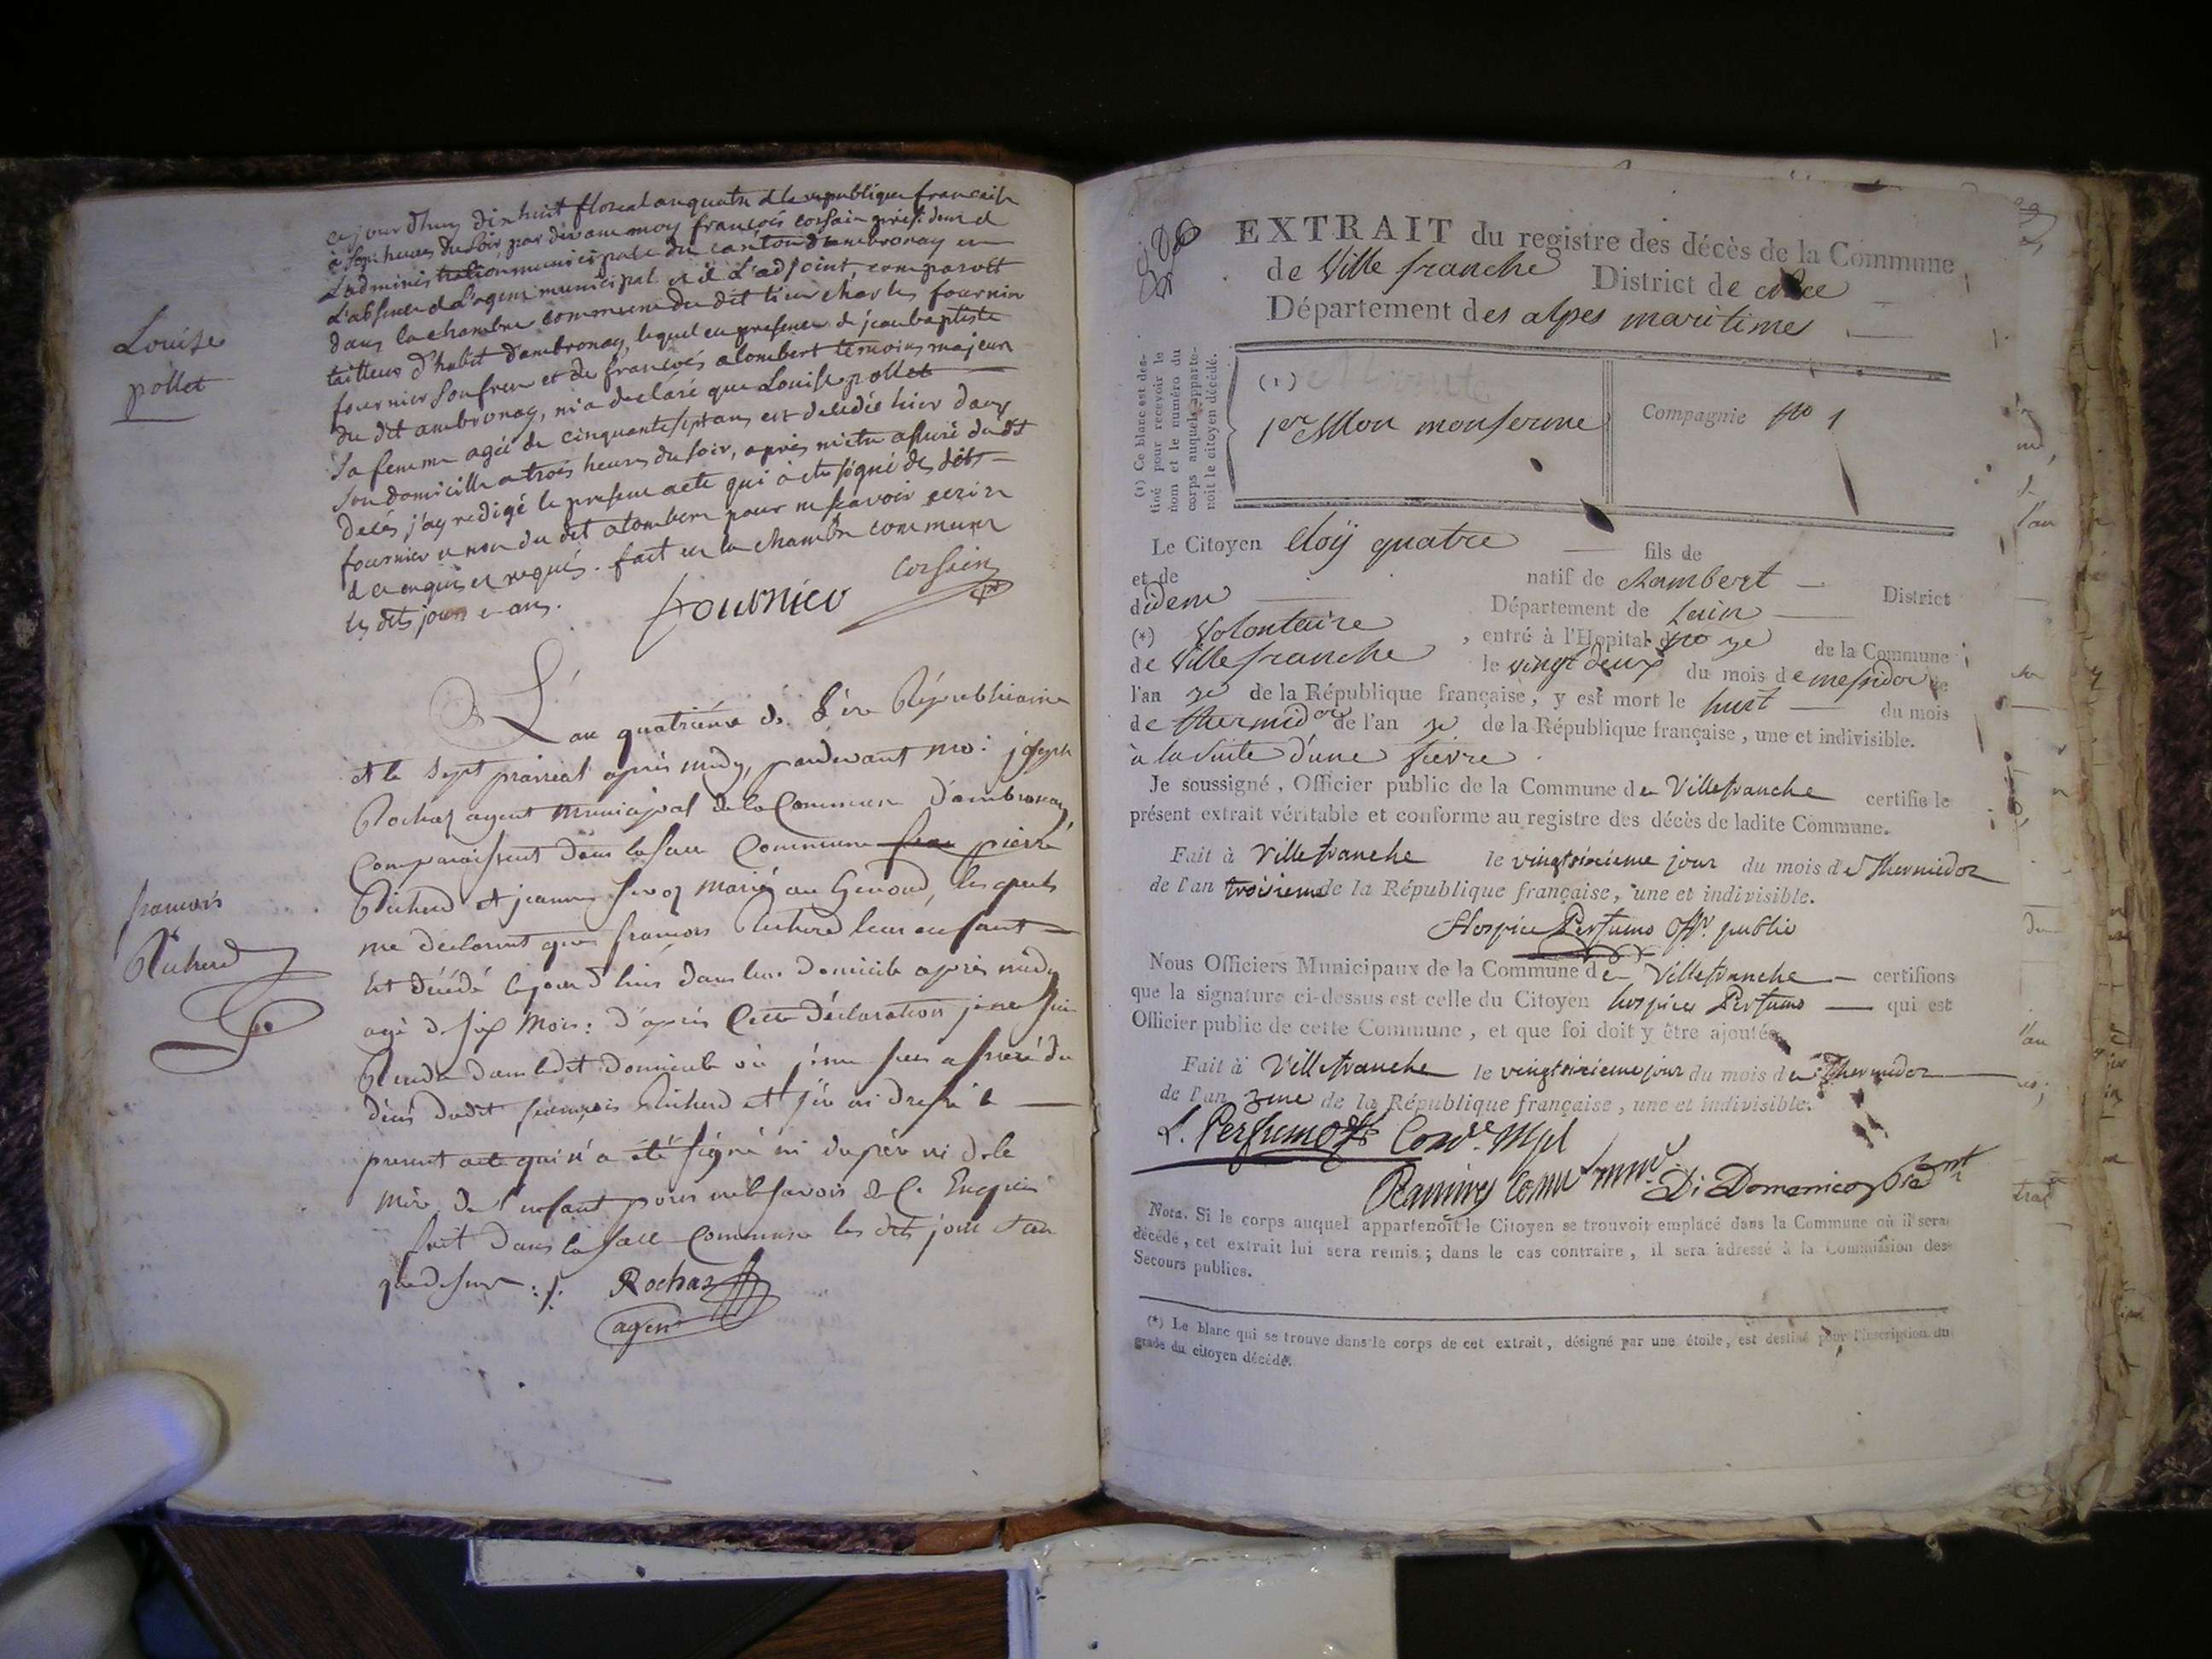 Louise
pollet
ce jour d'huy dix huit floreal an quatre d la republique francaise
à sept heures du soir par devant moy francois corsain president d
L'administration municipale du canton d'ambronay en
L'absence de L'agent municipal et de L'adjoint, comparoit
dans la chambre commune du dit lieu charles fournier
tailleur d'habit d'ambronay, lequel en presence de jean baptiste
fournier son frere et de francois alombert temoins majeurs
du dit ambronay, m'a declaré que Louise pollet
sa femme agée de cinquante sept ans est decedée hier dans
son domicille a trois heures du soir, après m'etre assuré du dit
decés j'ay redigé le present acte qui à eté signé des dits
fournier e non du dit alombert pour ne scavoir ecrire
d ce enquis et requis. fait en la chambre commune
les dits jour e ans.
fournier
corsain
françois
Richerd
L'an quatriéme de l'ère Républicaine
et le sept prairial après midy, pardevant moi joseph
Rochaz agent municipal de la Commune d'ambronay
Comparaissent dans la salle Commune pierre
Richerd et jeanne mariés au Genoud, lesquels
me déclarent que francois Richerd leur enfant
est décédé ce jour d'hui dans leur domicile après midy
agé de six mois: d'après Cette déclaration je me suis
Rendu dans ledit domicile où je me suis assuré du
décès dudit françois Richerd et j'en ai dressé le
present acte qui n'a été signé ni du père ni de la
mère de l'enfant pour ne le savoir de Ce Enquis
fait dans la salle Commune les dits jour et an
que dessus
Rochaz
agent
EXTRAIT du registre des décès de la Commune
de Ville franche District de
Département des alpes maritimes
(1) Ce blanc est des-
tiné pour recevoir le
nom et le numéro du
corps auquel apparte-
noit le citoyen décédé.
(1)
1er Compagnie no 1
Le Citoyen Eloÿ quatre fils de
et de natif de chambert District
didem Département de Lain
(*) Volontaire, entré à l'Hopital de la Commune
de Ville franche le vingt deux du mois de messidor
l'an 3e de la République française, y est mort le huit du mois
de thermidor de l'an 3e de la République française, une et indivisible.
à la suite d'une fievre
Je soussigné, Officier public de la Commune de Villefranche certifie le
présent extrait véritable et conforme au registre des décès de ladite Commune.
Fait à Villefranche le vingtsixieme jour du mois de Thermidor
de l'an troisieme de la République française, une et indivisible.
Hospice Perfumo Offr. public
Nous Officiers Municipaux de la Commune de Villefranche certifions
que la signature ci-dessus est celle du Citoyen hospice Perfumo qui est
Officier public de cette Commune, et que foi doit y être ajoutée.
Fait à Villefranche le vingtsixieme jour du mois de Thermidor
de l'an 3me de la République française, une et indivisible.
L. Perfumo
Di Domenico
Nota. Si le corps auquel appartenoit le Citoyen se trouvoit emplacé dans la Commune où il sera
décédé, cet extrait lui sera remis; dans le cas contraire, il sera adressé à la Commission des
Secours publics.
(*) Le blanc qui se trouve dans le corps de cet extrait, désigné par une étoile, est destiné pour l'inscription du
grade du citoyen décédé.